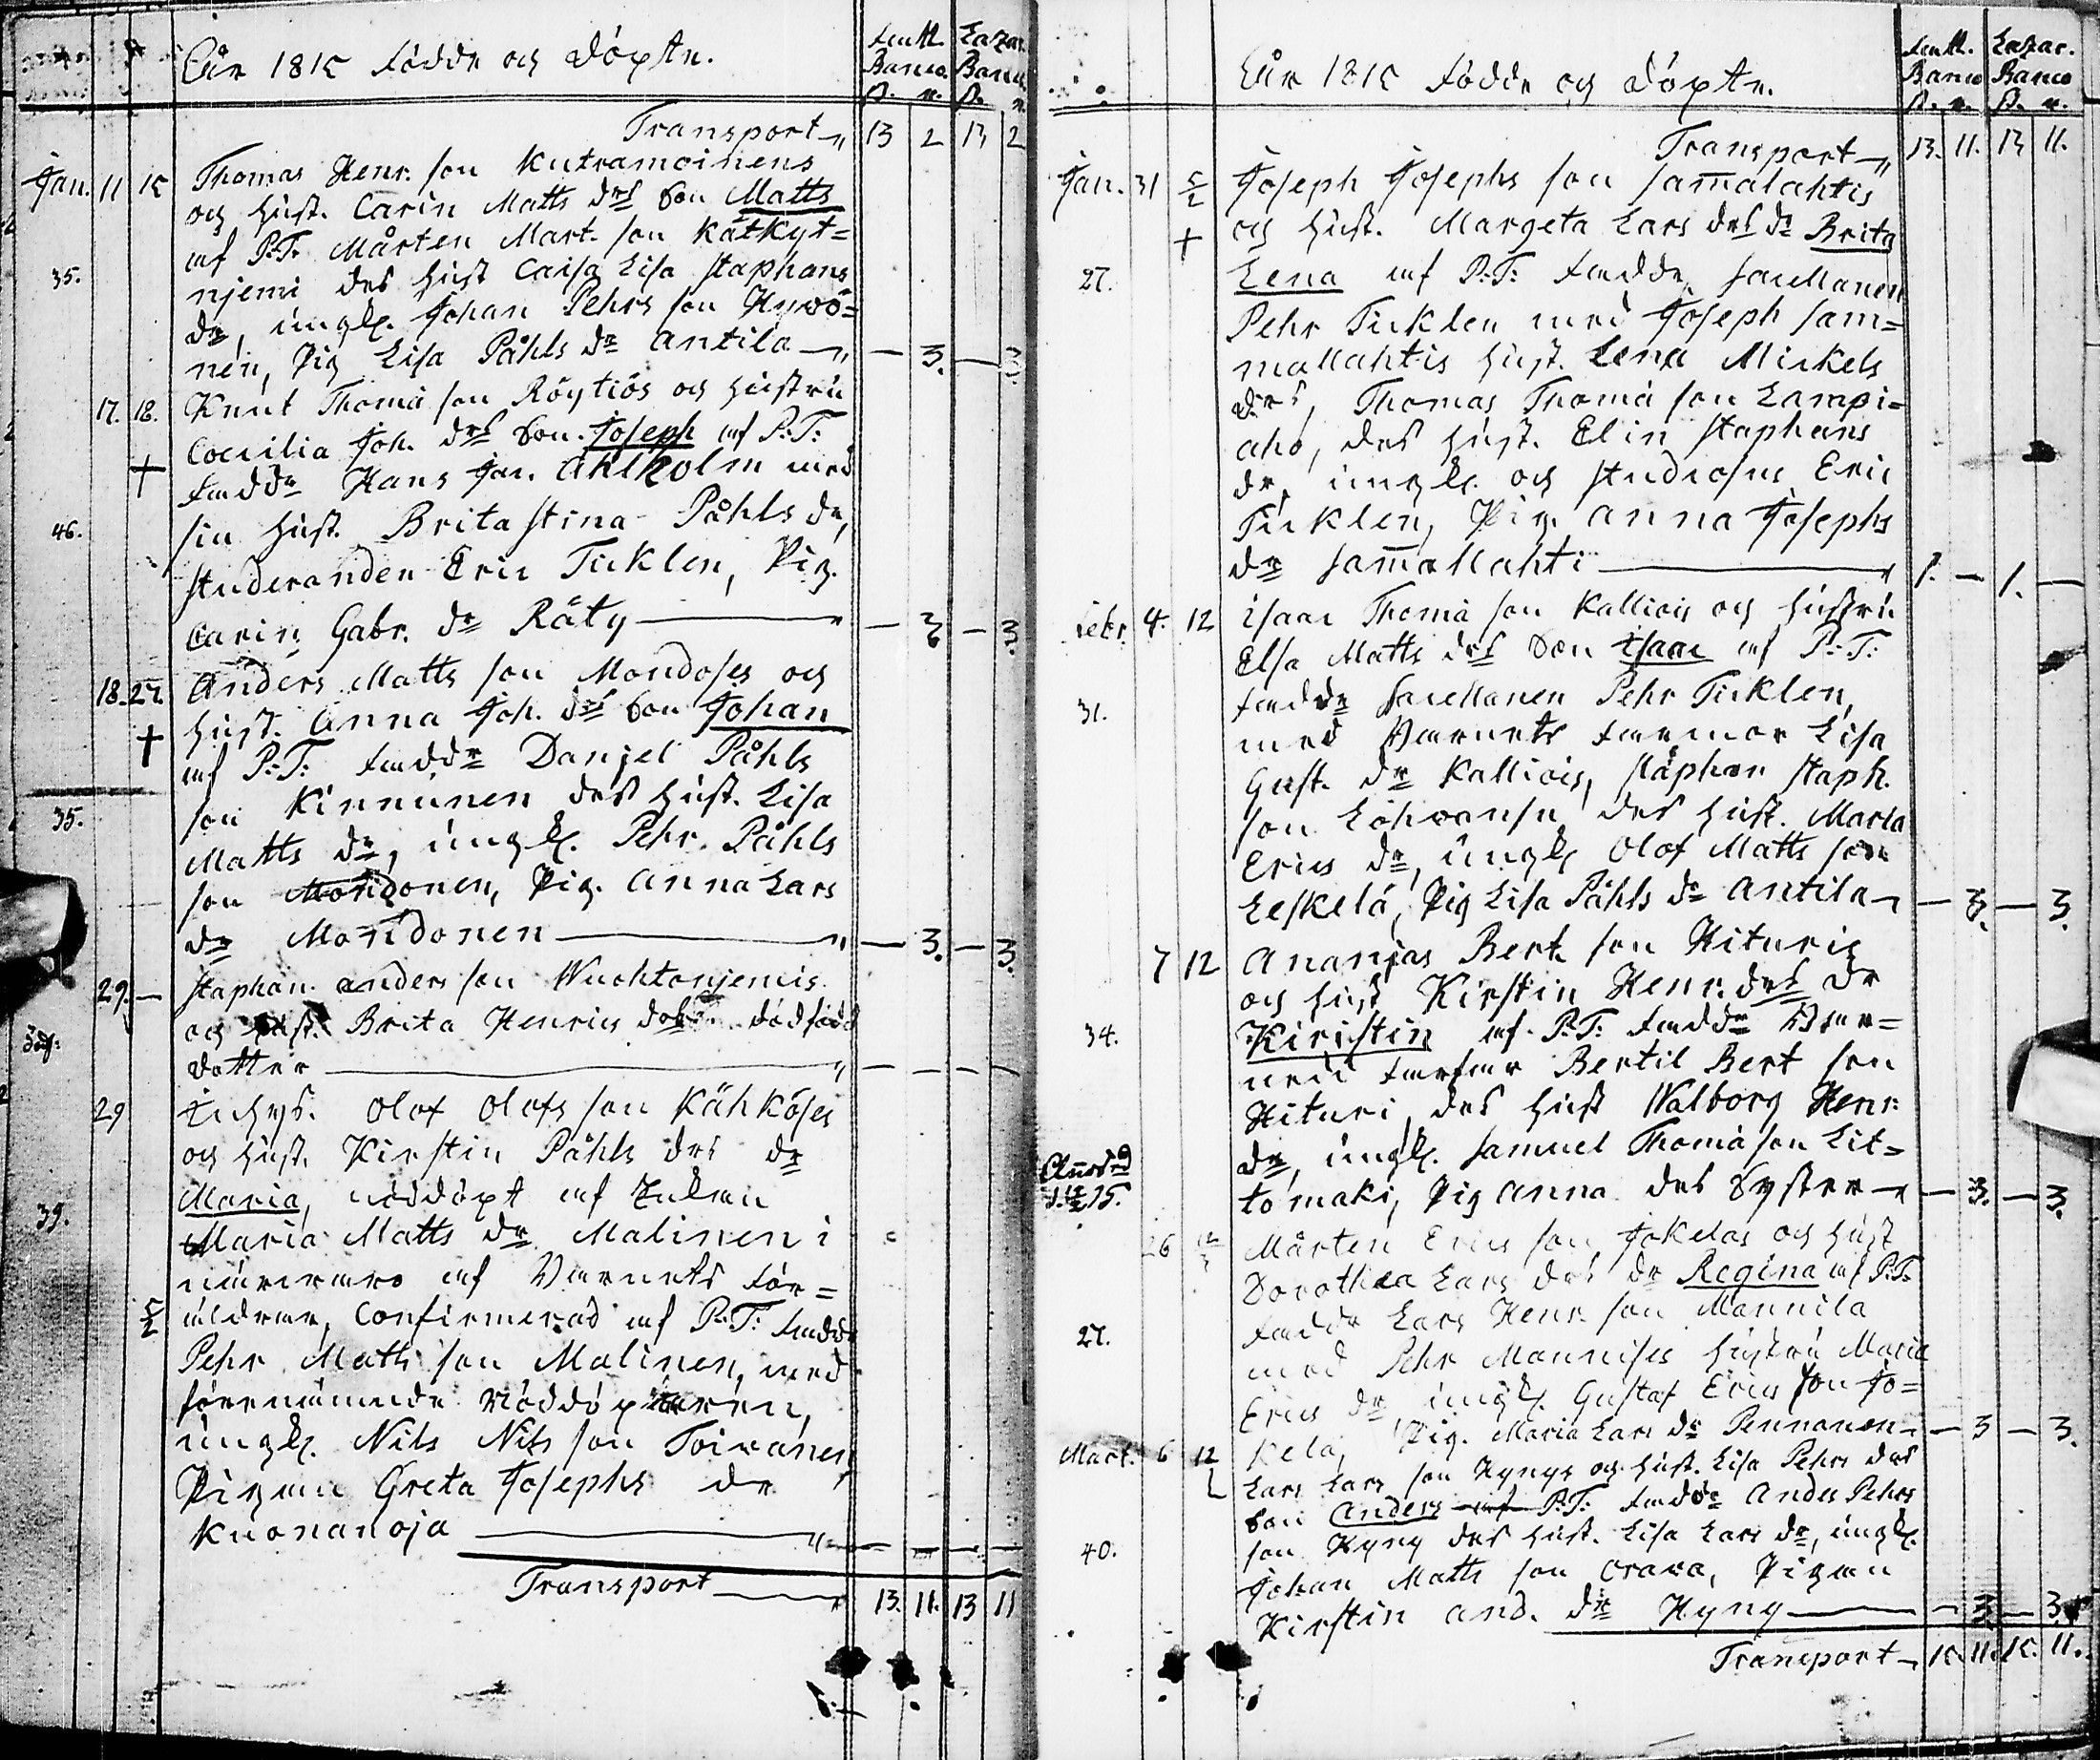 År 1815 födde og döpte.
Fatt. Lazar.
Banco. Banco
ß. r. ß. r.
Transport 13 2 13 2
Jan. 11 15 Thomas Henr. son Kutramoinens
og hust. Carin Matts drs Son Matts
af P.T. Mårten Mart. son Kätkyt=
35. njemi des hust Caisa Lisa Staphans
dr, ungk. Johan Pehrs son Hywö=
nen, Pig Lisa Påhls dr Antila — 3. — 3.
17. 18. Knut Thomæ son Röytiös og hustru
Coecilia Joh. drs Son. Joseph af P:T:
+ Fadd: Hans Jac. Ahlholm med
46. sin hust. Brita Stina Påhls dr,
Studeranden Eric Ticklen, Pig.
Carin Gabr. dr Räty — 3 — 3.
18. 27. Anders Matts son Mondoses og
+ hust. Anna Joh. drs Son Johan
af P:T: Fadd: Danjel Påhls
35. son Kinnunen des hust. Lisa
Matts dr, ungk. Pehr Påhls
son Mondonen, Pig. Anna Lars
dr Mondonen — 3. — 3.
29. — Staphan Anders son Wuohtonjemis
og hust. Brita Henrics drs dödfödd
dotter — — — —
29 Inhys. Olof Olofs son Kähköses
og hust. Kirstin Påhls drs dr
39. Maria, nöddöpt af Enkan
Maria Matts dr Malinen i
närwaro af Barnets för=
5/2 äldrar, Confirmerad af P:T: Fadd:
Pehr Matts son Malinen, med
förenämnde Nöddöpterén,
ungk. Nils Nils son Toiwanen
Pigan Greta Josephs dr
Kuonanoja — — — —
Transport 13. 11. 13 11
År 1815 födde og döpte.
Fatt. Lazar.
Banco Banco
ß. r. ß. r.
Transport 13. 11. 13 11.
Jan. 31 5/2 Joseph Josephs son Sam̄alahtis
+ og hust. Margeta Lars drs dr Brita
27. Lena af P:T: Fadd: Snellmanen
Pehr Ticklen med Joseph Sam=
mallahtis hust. Lena Mickels
drs, Thomas Thomæ son Lampi=
aho, des hust. Elin Staphans
dr, ungk. og Studiosus Eric
Ticklen, Pig. Anna Josephs
dr Sam̄allahti 1. — 1. —
Febr. 4. 12 Isaac Thomæ son Kalliois og hustru
Elsa Matts drs Son Isaac af P:T:
31. Fadd: Pehr Ticklen,
med Barnets Farmor Lisa
Gust. dr Kalliois, Staphan Staph.
son des hust. Maria
Erics dr, ungk. Olof Matts son
Leskelä, Pig Lisa Påhls dr Antila — 3. — 3.
7 12 Ananjas Bert. son Hituris
og hust Kirstin Henr. drs dr
34. Kiristin af P:T: Fadd: Bar=
nets farfar Bertil Bert son
Hituri, des hust Walborg Henr.
dr, ungk. Samuel Thomæ son Lit=
tomäki, Pig Anna des Syster — 3. — 3.
26 12/3 Mårten Erics son Jokelas og hust
Dorothea Lars drs dr Regina af P:T:
27. Fadd: Lars Henr. son Mannila
med Pehr Mannises hustru Maria
Erics dr, ungk. Gustaf Erics son Jo=
kela, Pig. Maria Lars dr Pennanen — 3 — 3.
Mart. 6 12 Lars Lars son Hynys og hust. Lisa Pehrs drs
Son Anders af P:T: Fadd: Anders Pehrs
40. son Hyny des hust. Lisa Lars dr, ungk.
Johan Matts son Orava, Pigan
Kirstin And. dr Hyny — 3. — 3.
Transport 15. 11. 15. 11.